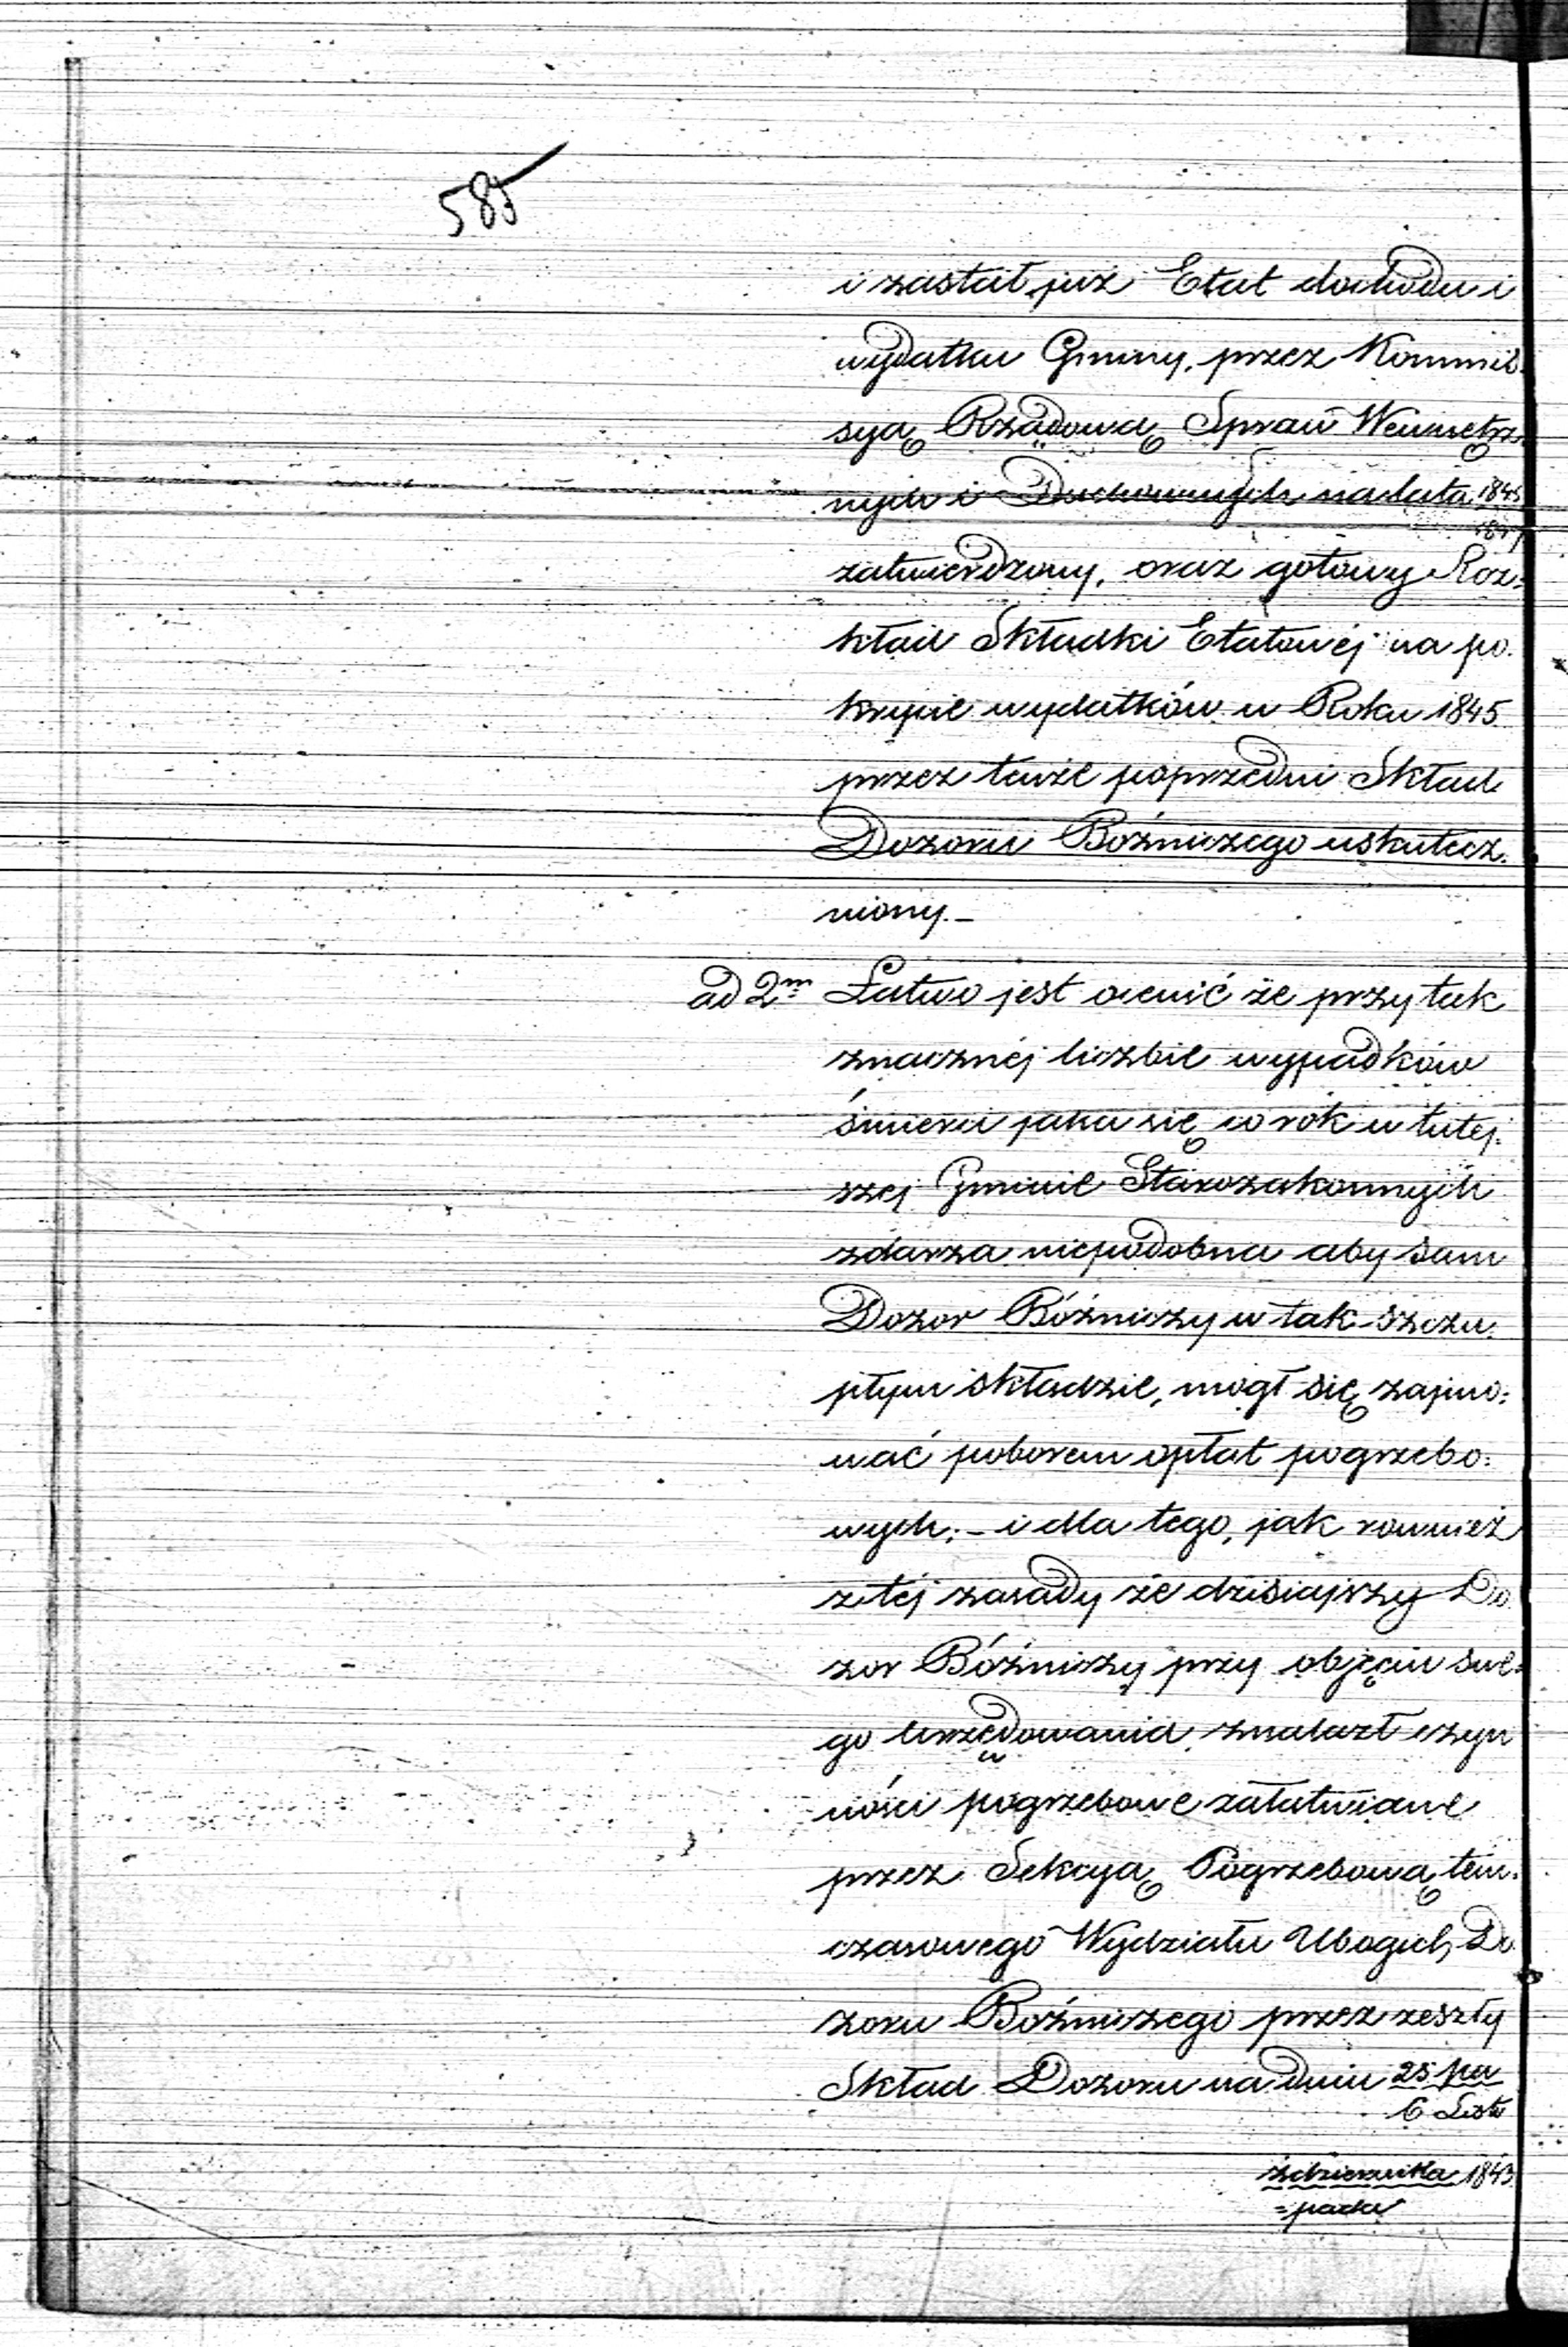 585
i zastał już Etat dochodu i
wydatku Gminy, przez Kommis-
syą Rządową Spraw Wewnętrz-
nych i Duchownych na lata 1845
1847
zatwierdzony, oraz gotowy Roz=
kład Składki Etatowéj na po-
krycie wydatków w Roku 1845
przez tenże poprzedni Skład
Dozoru Bóźniczego uskutecz-
niony.-
ad 2m Łatwo jest ocenić że przy tak
znacznéj liczbie wypadków
śmierci jaka się co rok w tutej-
szej Gminie Starozakonnych
zdarza niepodobna aby sam
Dozor Bóźniczy w tak szczu-
płym składzie, mogł się zajmo=
wać poborem opłat pogrzebo=
wych; - i dla tego, jak rownież
z téj zasady że dzisiajszy Do
zor Bóźniczy przy objęciu swe=
go Urzędowania, znalazł czyn
ności pogrzebowe załatwiane
przez Sekcyą Pogrzebową tem-
czasowego Wydziału Ubogich, Do
zoru Bóźniczego przez zeszły
Skład Dozoru na dniu 25 pa
6 Listo
ździernika 1843
=pada